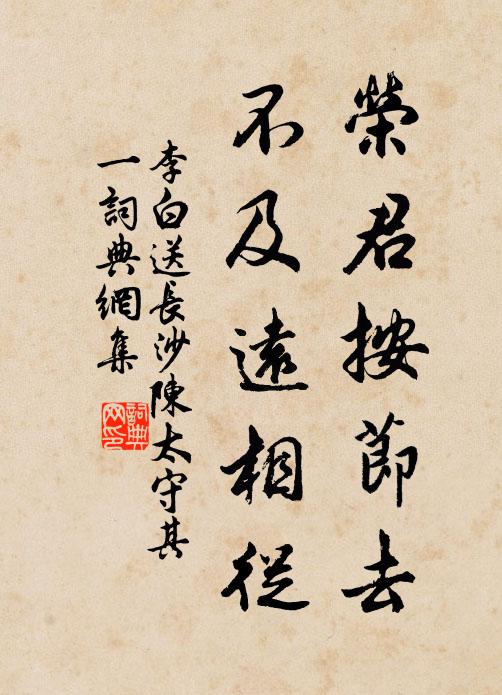 榮君按節去
不及遠相從
李白送長沙陳太守其
一詞典網集
詞典
网印